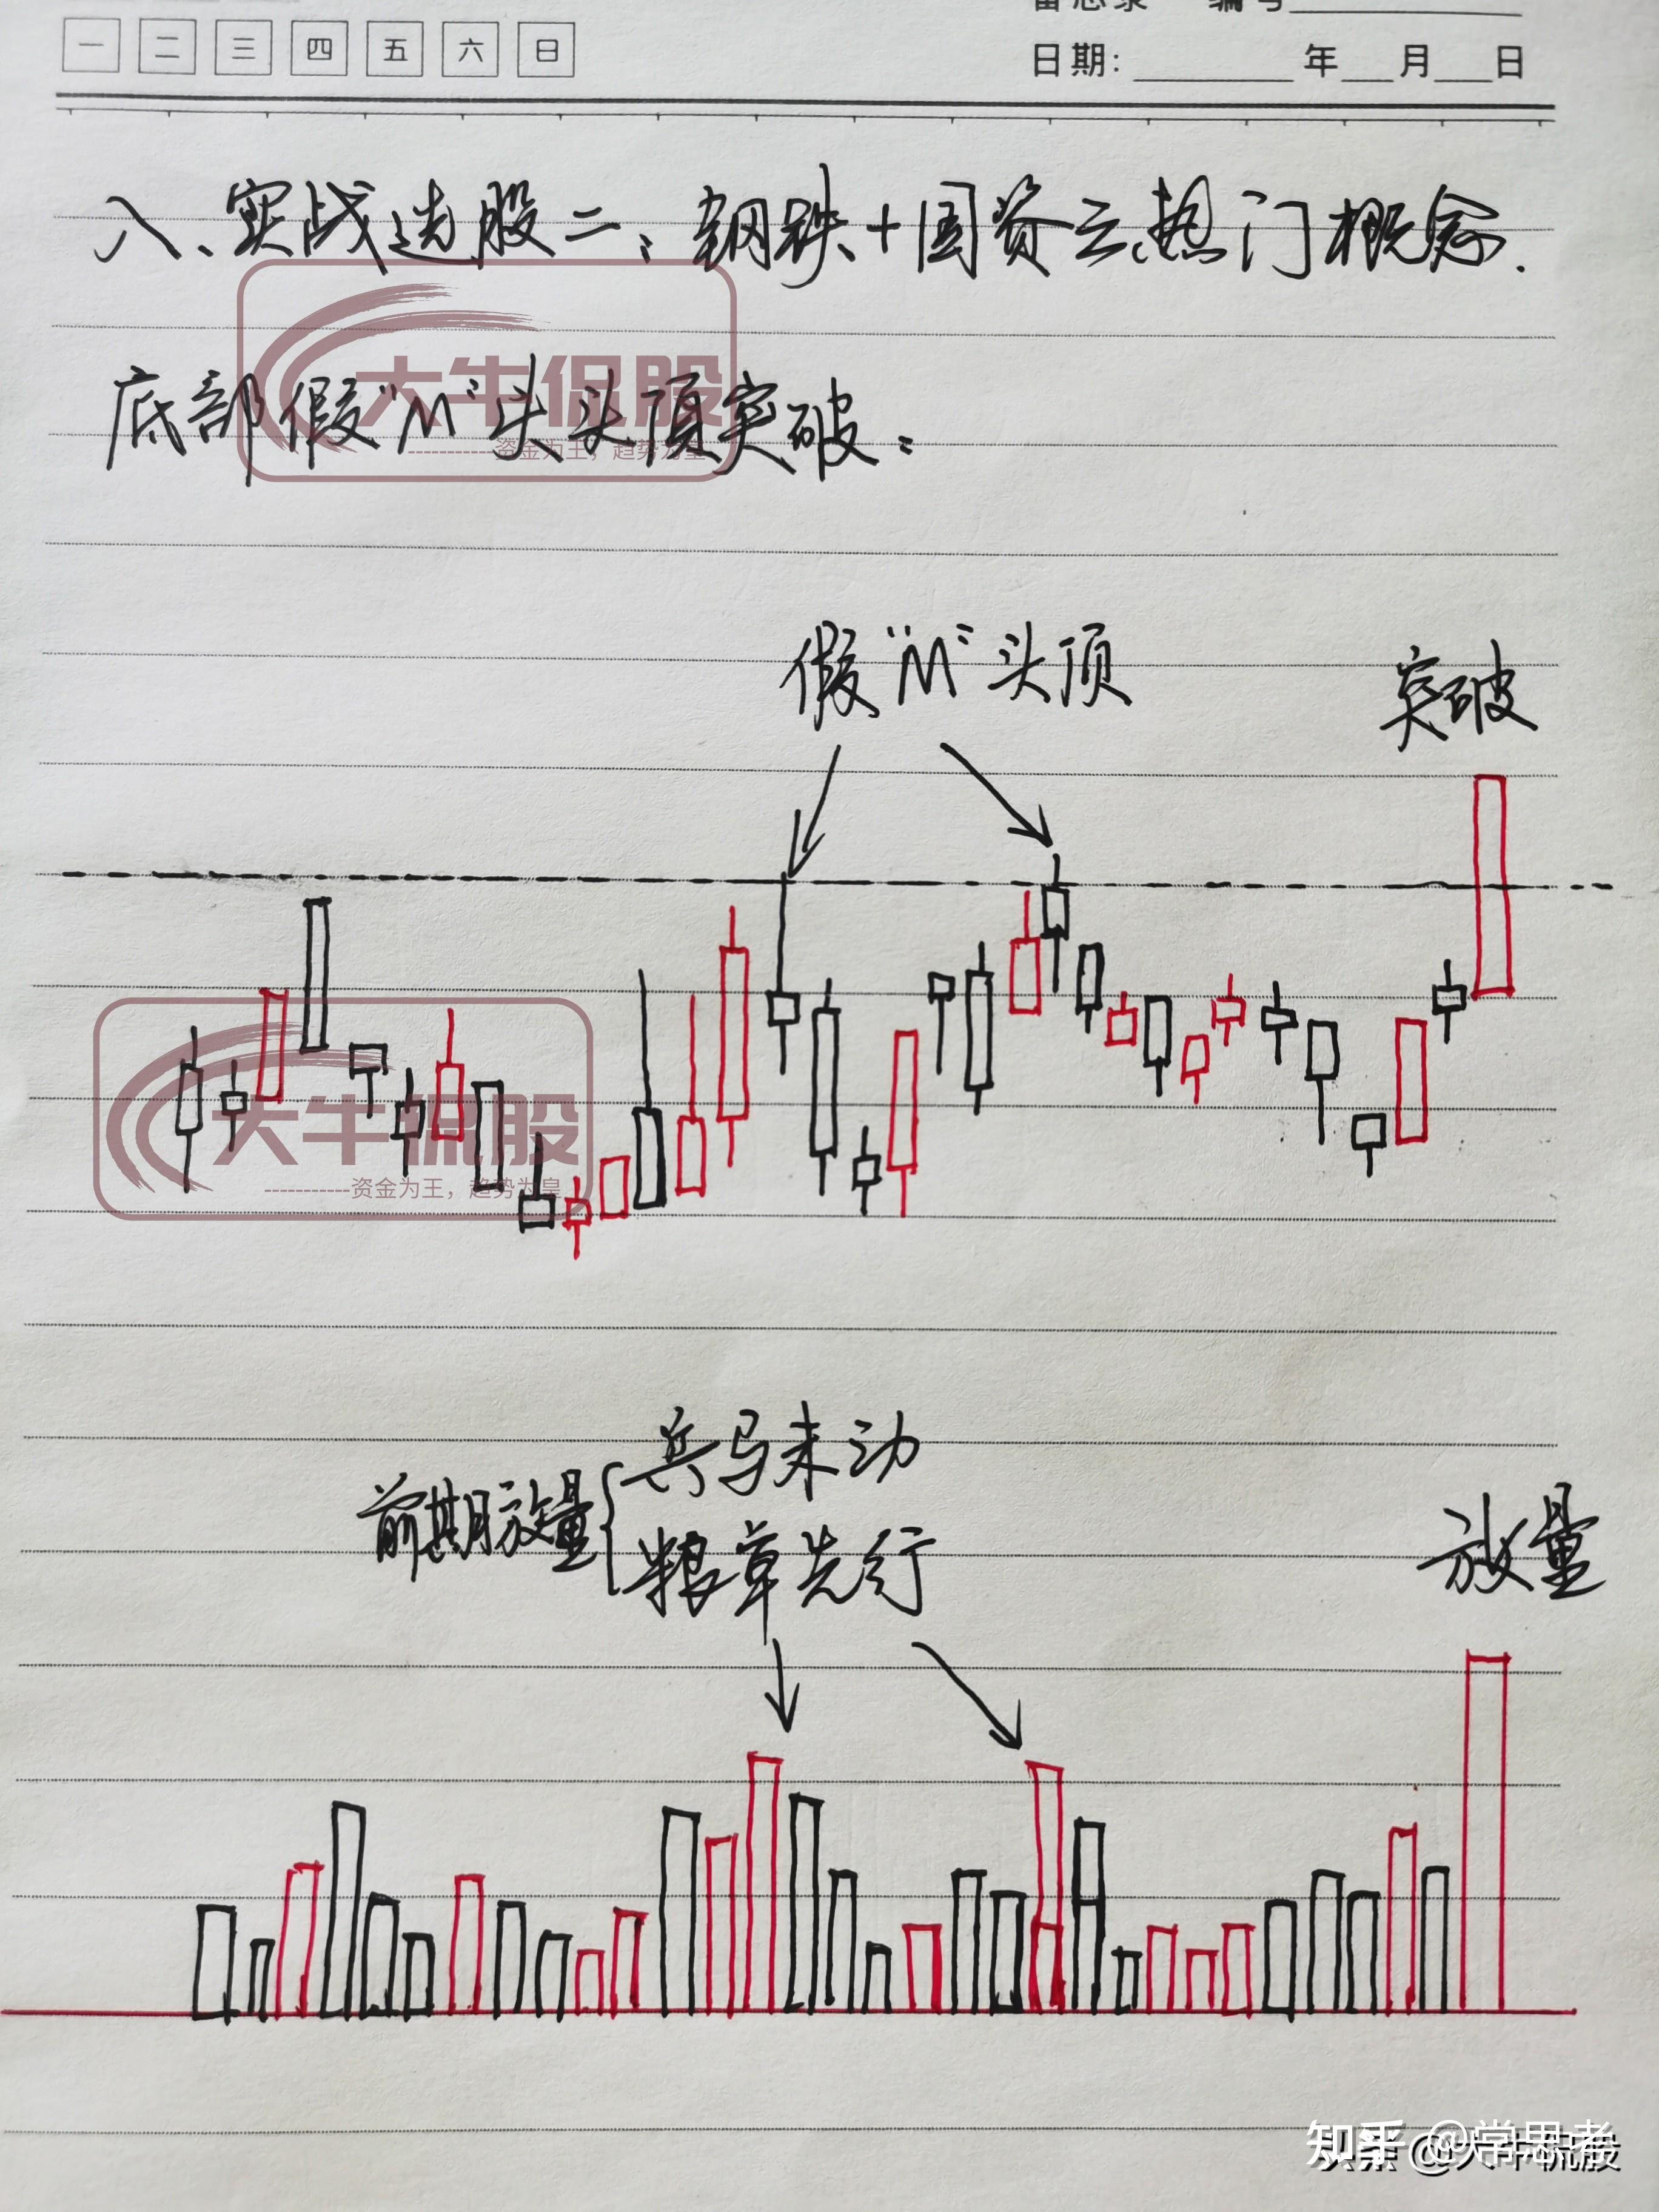 备忘录 编号
一 二 三 四 五 六 日
日期: 年 月 日
八、实战选股二:钢铁+国资云热门概念.
底部假"M"头头顶突破:
大牛侃股
-----------资金为王,趋势为皇
假"M"头顶
突破
大牛侃股
-----------资金为王,趋势为皇
前期放量
兵马未动
粮草先行
放量
知乎 @学思考
头条 @大牛侃股